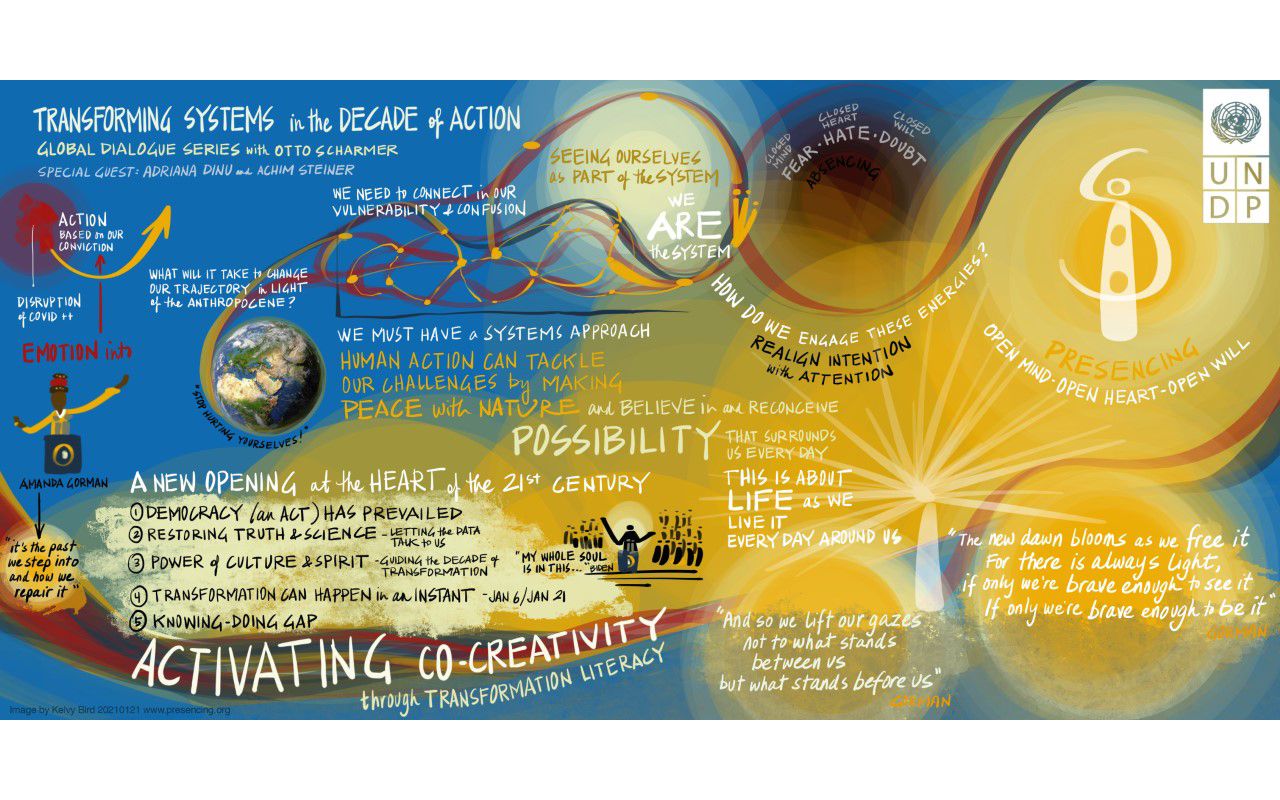 TRANSFORMING SYSTEMS in the DECADE of ACTION
GLOBAL DIALOGUE SERIES with OTTO SCHARMER
SPECIAL GUEST: ADRIANA DINU and ACHIM STEINER
ACTION
BASED on OUR
CONVICTION
DISRUPTION
of COVID ++
EMOTION into
AMANDA GORMAN
"it's the past
we step into
and how we
repair it"
WHAT WILL IT TAKE to CHANGE
OUR TRAJECTORY in LIGHT
of the ANTHROPOCENE?
"STOP HURTING YOURSELVES!"
WE NEED to CONNECT in OUR
VULNERABILITY & CONFUSION
SEEING OURSELVES
as PART of the SYSTEM
WE
ARE
the SYSTEM
CLOSED
MIND
CLOSED
HEART
CLOSED
WILL
FEAR · HATE · DOUBT
ABSENCING
HOW DO WE ENGAGE THESE ENERGIES?
REALIGN INTENTION
with ATTENTION
UN
DP
PRESENCING
OPEN MIND · OPEN HEART - OPEN WILL
WE MUST HAVE a SYSTEMS APPROACH
HUMAN ACTION CAN TACKLE
OUR CHALLENGES by MAKING
PEACE with NATURE and BELIEVE in and RECONCEIVE
POSSIBILITY THAT SURROUNDS
US EVERY DAY
THIS IS ABOUT
LIFE as WE
LIVE IT
EVERY DAY AROUND US
A NEW OPENING at the HEART of the 21st CENTURY
① DEMOCRACY (an ACT) HAS PREVAILED
② RESTORING TRUTH & SCIENCE - LETTING the DATA
TALK to US
③ POWER of CULTURE & SPIRIT - GUIDING the DECADE of
TRANSFORMATION
④ TRANSFORMATION CAN HAPPEN in an INSTANT - JAN 6/JAN 21
⑤ KNOWING-DOING GAP
"MY WHOLE SOUL
IS IN THIS..." BIDEN
ACTIVATING CO-CREATIVITY
through TRANSFORMATION LITERACY
"And so we lift our gazes
not to what stands
between us
but what stands before us"
GORMAN
"The new dawn blooms as we free it
For there is always light,
if only we're brave enough to see it
If only we're brave enough to be it"
GORMAN
Image by Kelvy Bird 20210121 www.presencing.org